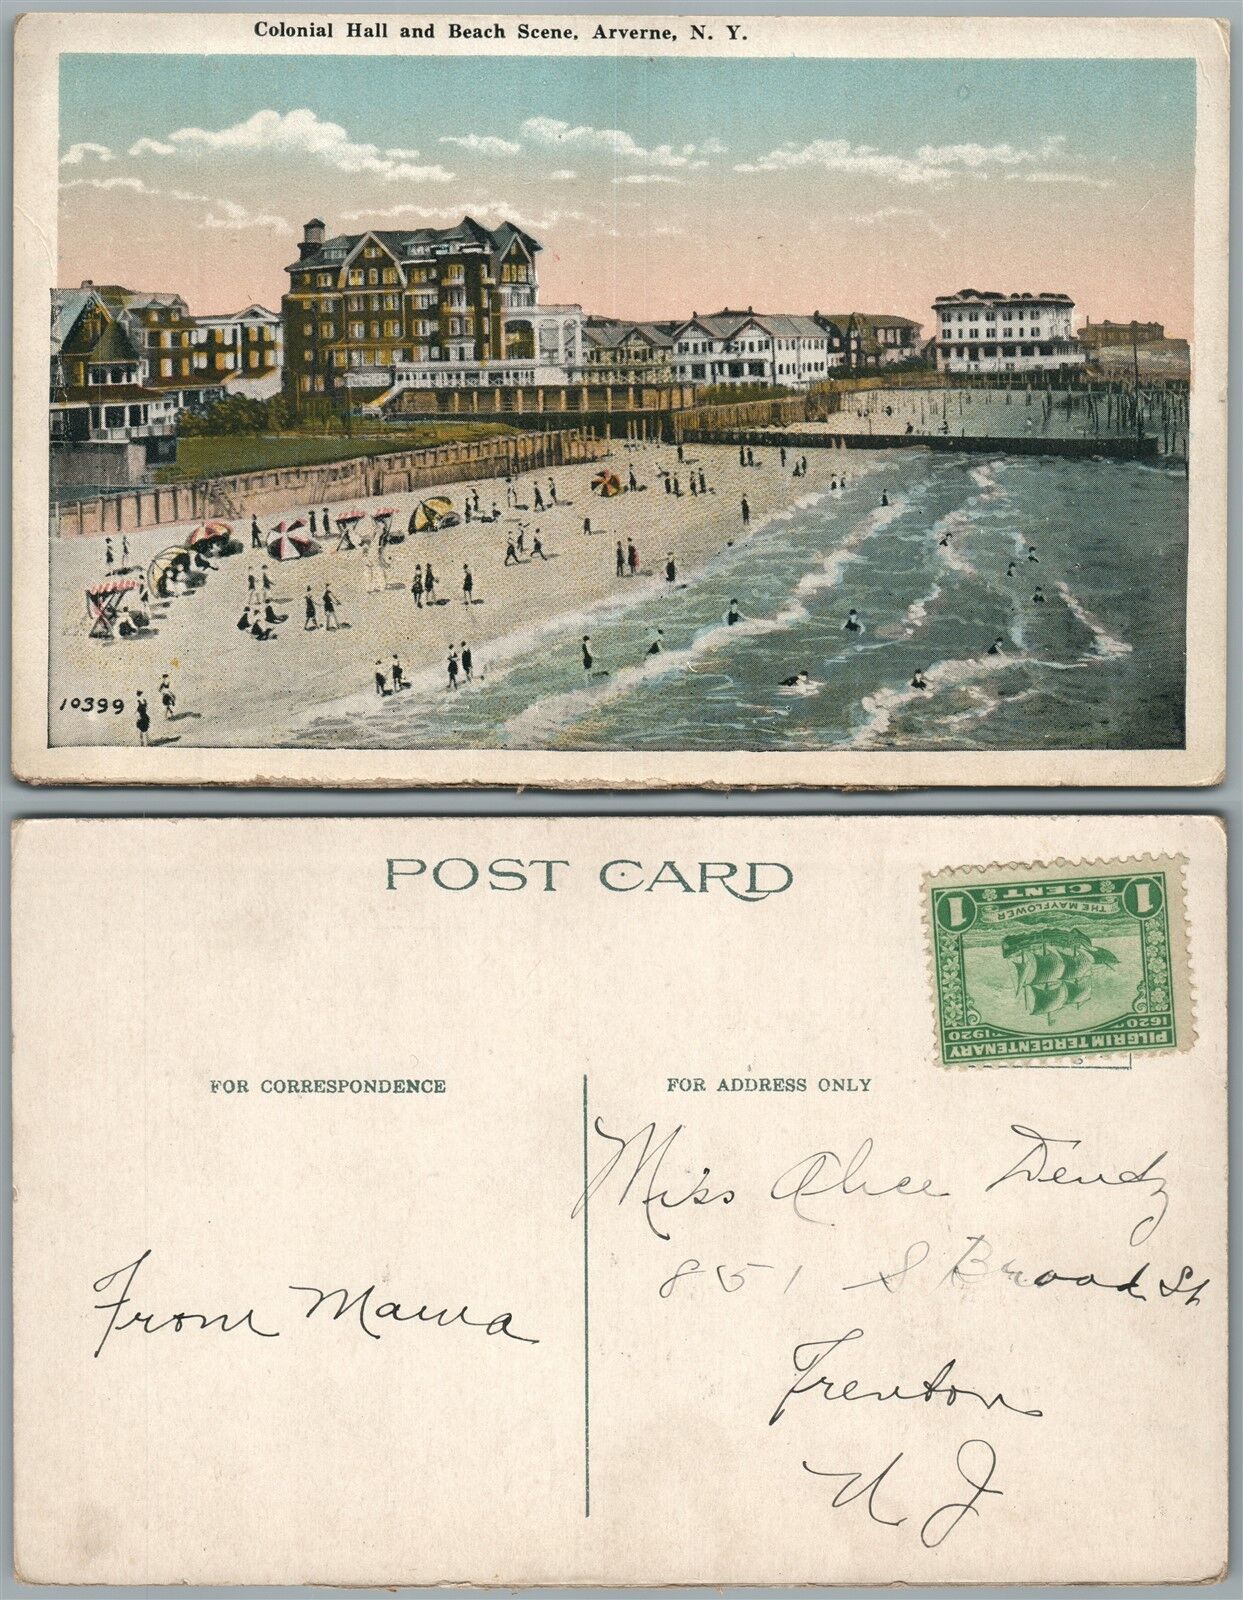 Colonial Hall and Beach Scene, Arverne, N. Y.
10399
POST CARD
1 CENT 1
THE MAYFLOWER
1620 1920
PILGRIM TERCENTENARY
FOR CORRESPONDENCE
FOR ADDRESS ONLY
Miss Alice Dendz
851 S Broad St
From Mama
Trenton
N J